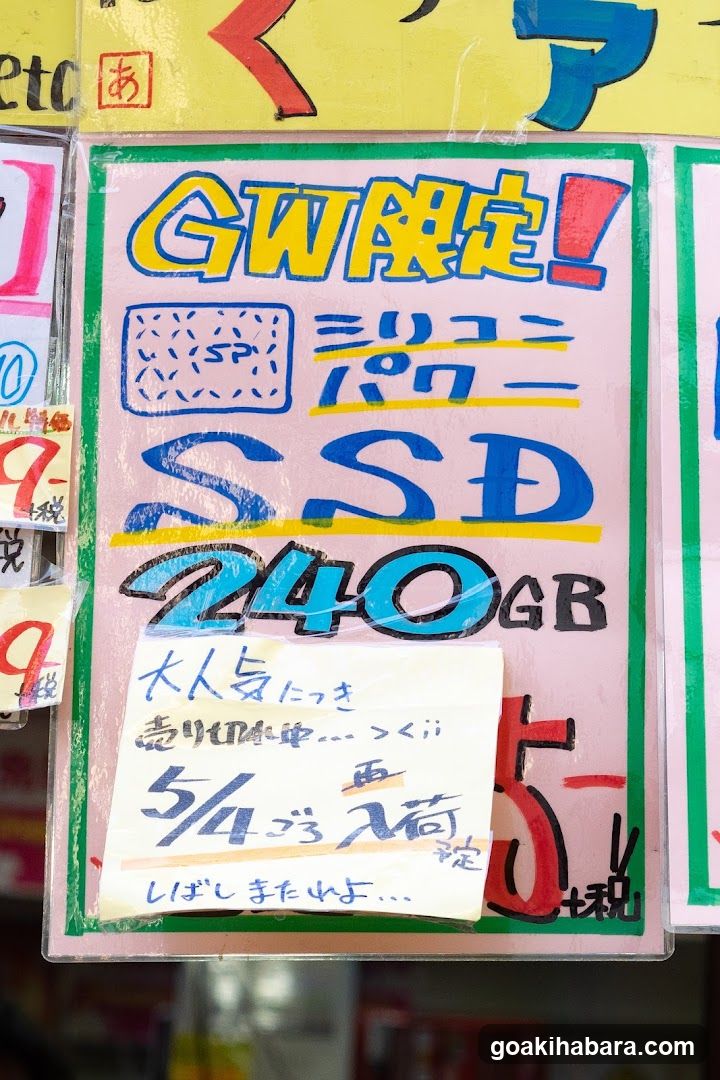 etc
あ
く
ア
GW限定!
SP
シリコン
パワー
SSD
240GB
大人気につき
売り切れ中...つくj;
5/4ごろ再入荷
予定
しばしまたれよ...
+税
9-
+税
税
9
+税
goakihabara.com